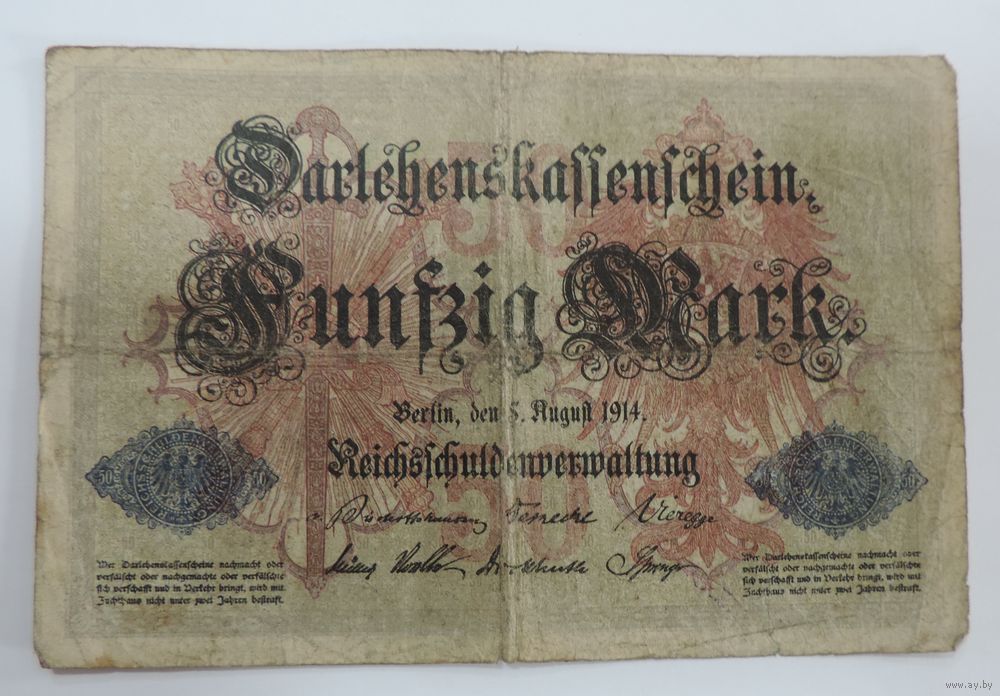 Darlehenskassenschein.
50
Funfzig Mark.
Berlin, den 5. August 1914.
Reichsschuldenverwaltung
50 REICHSSCHULDENVERWALTUNG 50
REICHSSCHULDENVERWALTUNG 50
v. Bischoffshausen Warnecke Vieregge
Müller Dr. Springer
50
Wer Darlehenskassenscheine nachmacht oder
verfälscht oder nachgemachte oder verfälschte
sich verschafft und in Verkehr bringt, wird mit
Zuchthaus nicht unter zwei Jahren bestraft.
Wer Darlehenskassenscheine nachmacht oder
verfälscht oder nachgemachte oder verfälschte
sich verschafft und in Verkehr bringt, wird mit
Zuchthaus nicht unter zwei Jahren bestraft.
www.ay.by